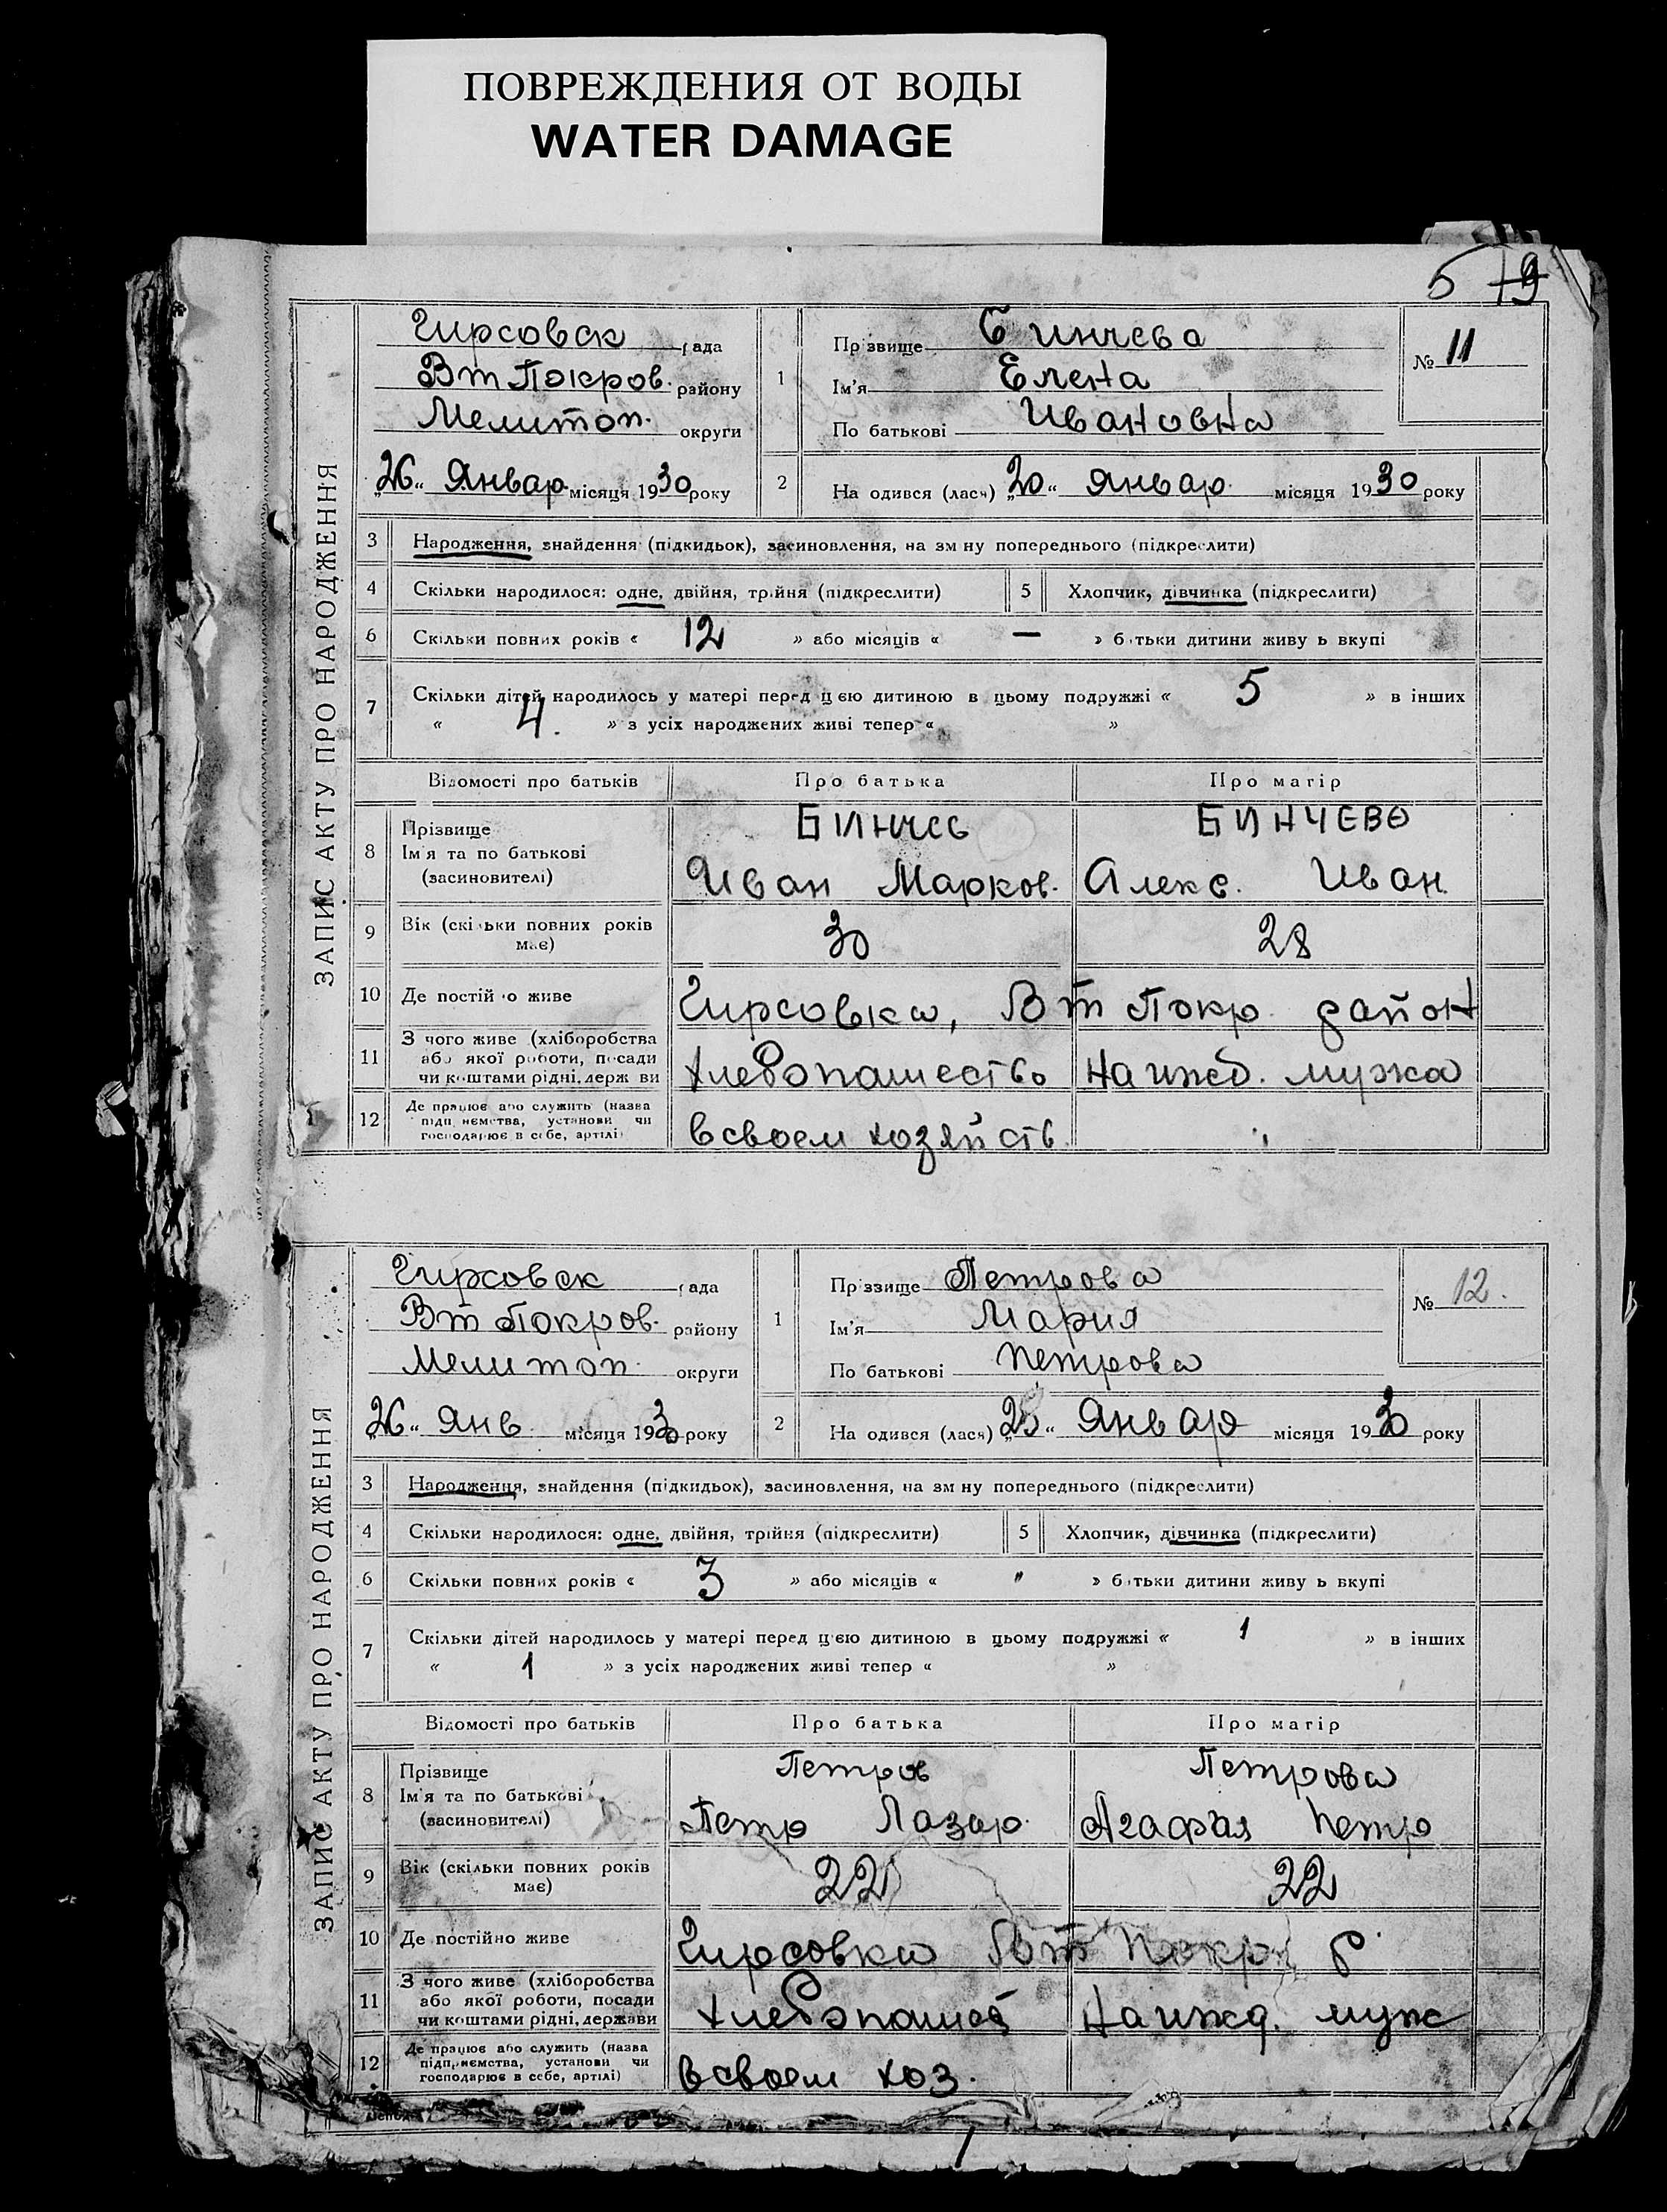 ПОВРЕЖДЕНИЯ ОТ ВОДЫ
WATER DAMAGE
5 19
ЗАПИС АКТУ ПРО НАРОДЖЕННЯ
Гирсовск рада
Вт Покров. району
Мелитоп. округи
„26“ Январ. місяця 1930 року
1 Прізвище Бинчева
Ім'я Елена
По батькові Ивановна
№ 11
2 На одився (лася) „20“ Январ. місяця 1930 року
3 Народження, знайдення (підкидьок), засиновлення, на зм ну попереднього (підкреслити)
4 Скільки народилося: одне, двійня, трійня (підкреслити) 5 Хлопчик, дівчинка (підкреслити)
6 Скільки повних років « 12 » або місяців « — » батьки дитини живу ь вкупі
7 Скільки дітей народилось у матері перед цією дитиною в цьому подружжі « 5 » в інших
« 4. » з усіх народжених живі тепер « »
Відомості про батьків Про батька Про матір
8 Прізвище Бинчев Бинчево
Ім'я та по батькові
(засиновителі) Иван Марков. Алекс. Иван
9 Вік (скільки повних років має) 30 28
10 Де постій о живе Гирсовка, Вт Покр. район
11 З чого живе (хліборобства
або якої роботи, посади
чи коштами рідні, держ ви Хлебопашество На ижд. мужа
12 Де працює або служить (назва
підп иємства, установи чи
господарює в себе, артілі) в своем хозяйств.
ЗАПИС АКТУ ПРО НАРОДЖЕННЯ
Гирсовск рада
Вт Покров. району
Мелитоп. округи
„26“ Янв. місяця 1930 року
1 Прізвище Петрова
Ім'я Мария
По батькові Петрова
№ 12.
2 На одився (лася) „25“ Января місяця 1930 року
3 Народження, знайдення (підкидьок), засиновлення, на зм ну попереднього (підкреслити)
4 Скільки народилося: одне, двійня, трійня (підкреслити) 5 Хлопчик, дівчинка (підкреслити)
6 Скільки повних років « 3 » або місяців « " » батьки дитини живу ь вкупі
7 Скільки дітей народилось у матері перед цією дитиною в цьому подружжі « 1 » в інших
« 1 » з усіх народжених живі тепер « »
Відомості про батьків Про батька Про матір
8 Прізвище Петров Петрова
Ім'я та по батькові
(засиновителі) Петр Лазар. Агафья Петр
9 Вік (скільки повних років має) 22 22
10 Де постійно живе Гирсовка Вт Покр. р
11 З чого живе (хліборобства
або якої роботи, посади
чи коштами рідні, держави Хлебопашест На ижд. муж
12 Де працює або служить (назва
підприємства, установи чи
господарює в себе, артілі) в своем хоз.